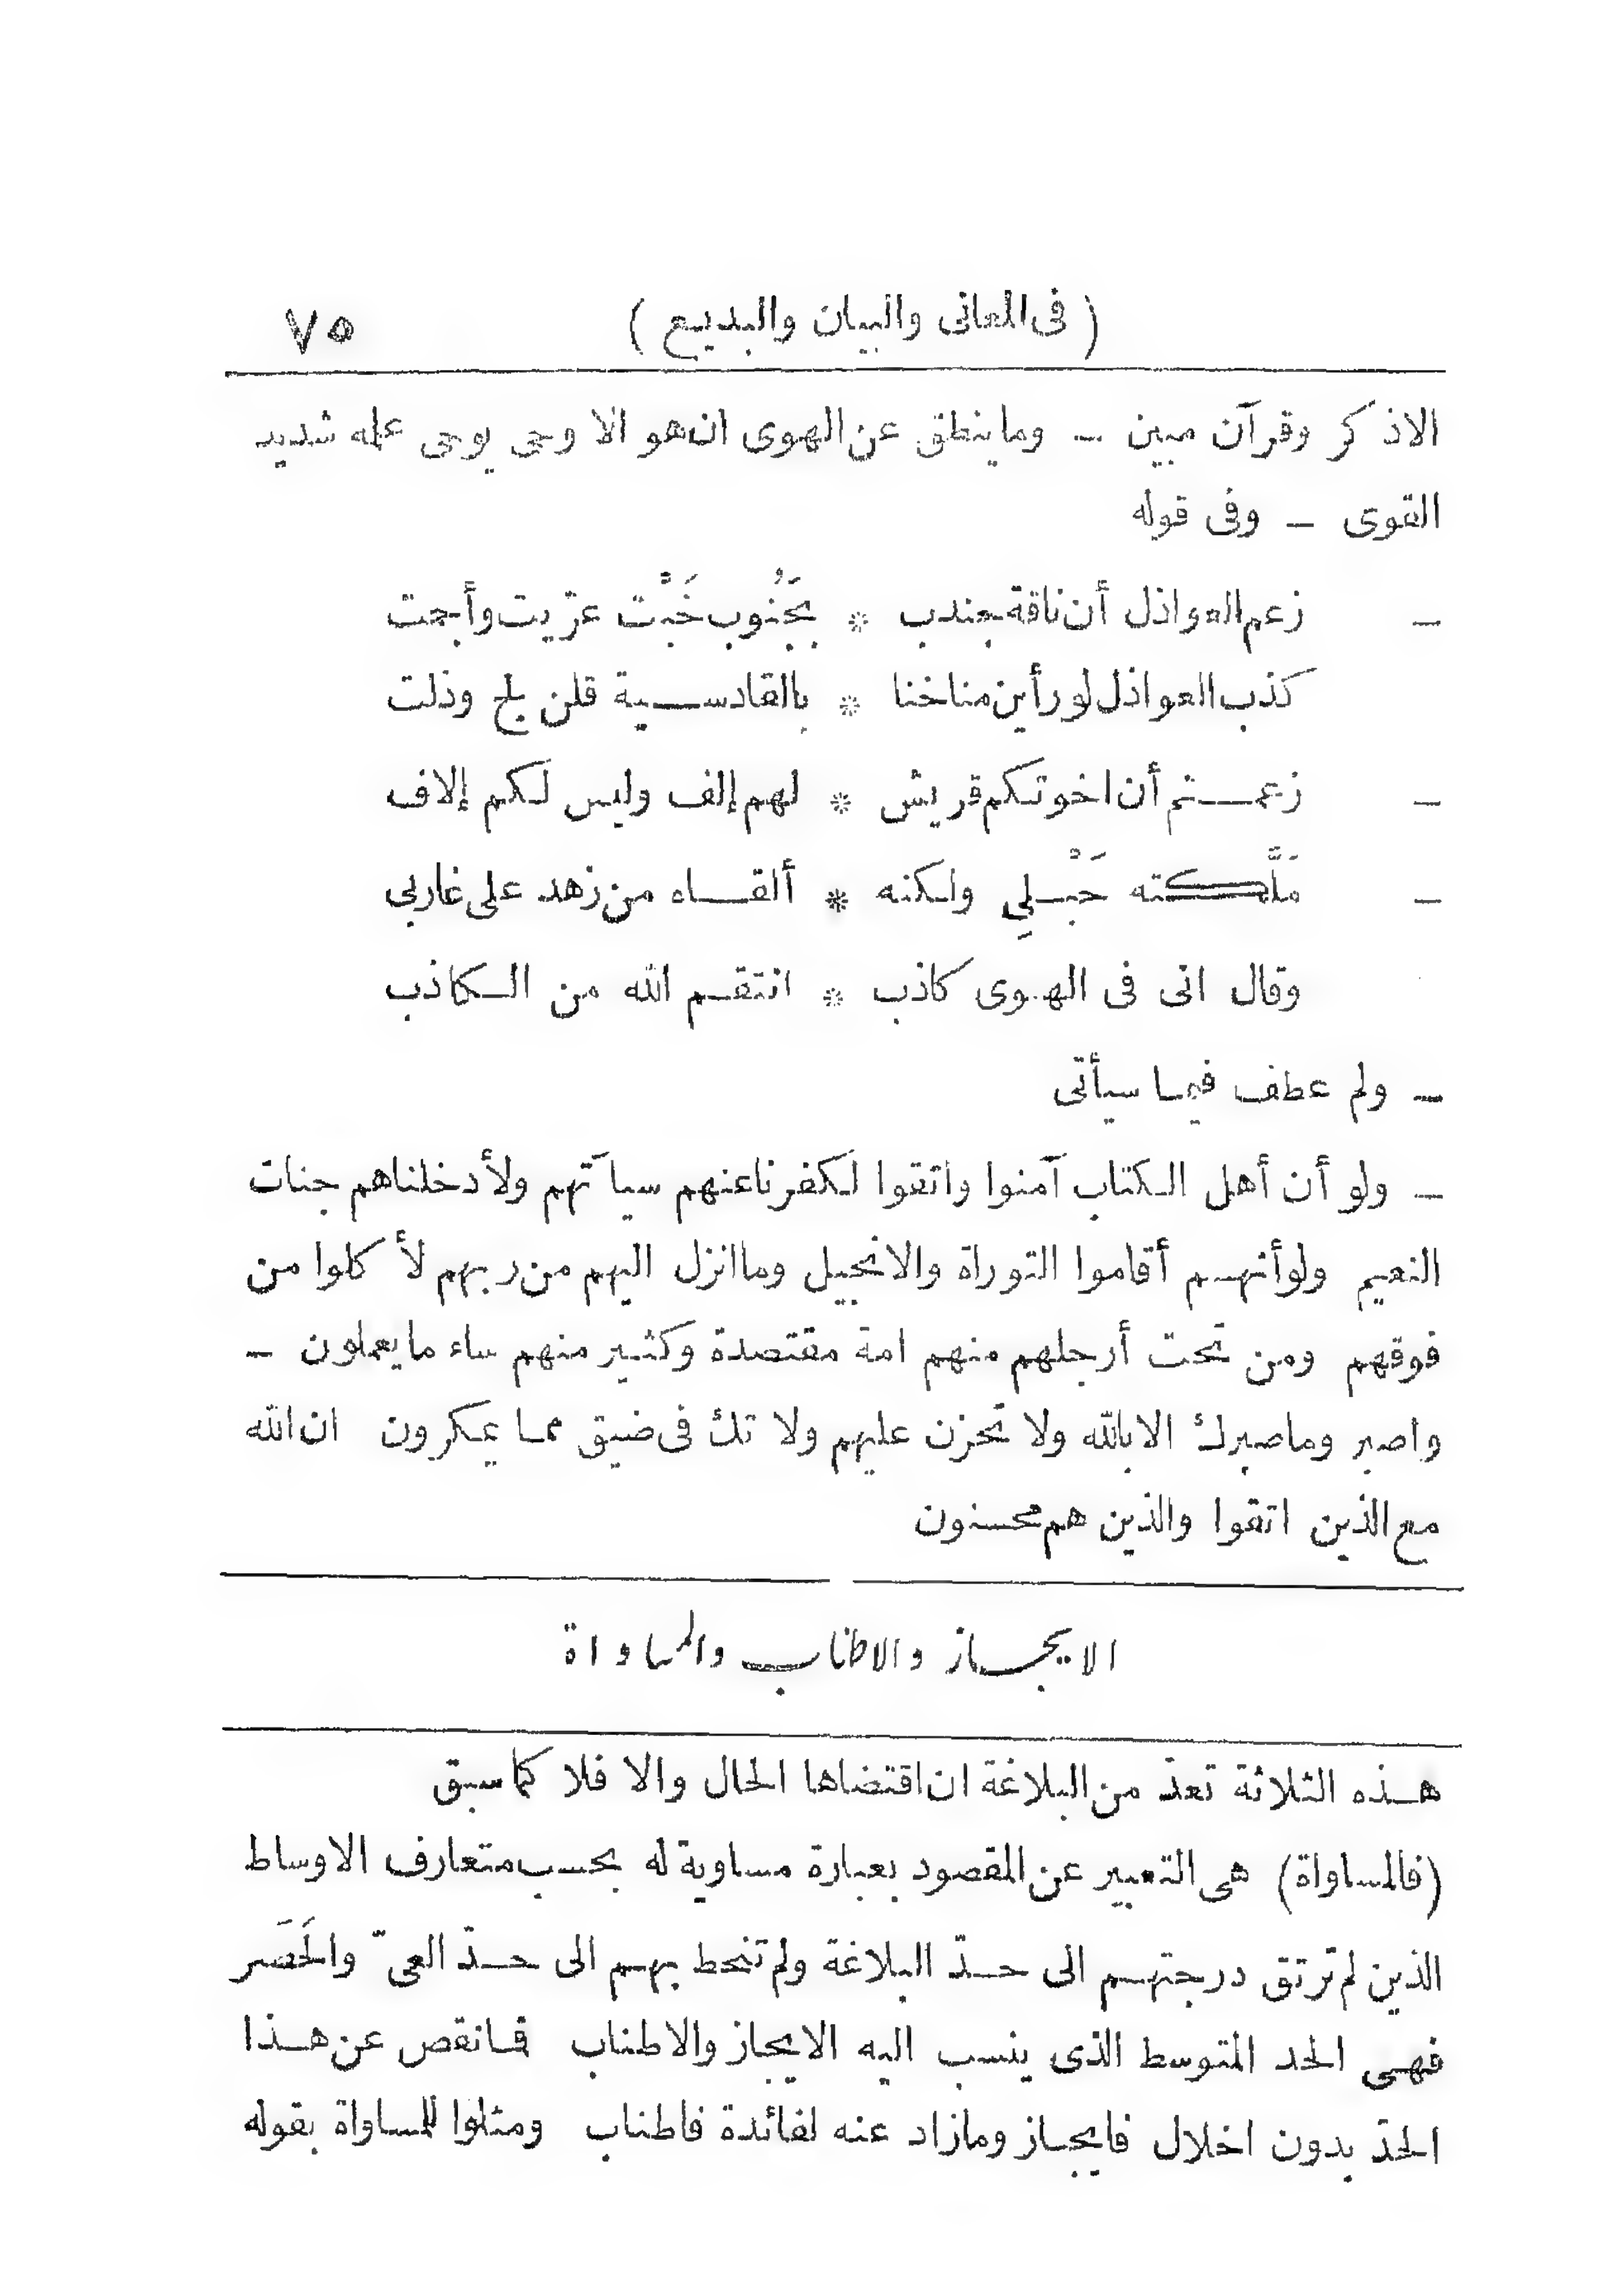 ( فى المعانى والبيان والبديع ) ٧٥
الاذكر وقرآن مبين — وما ينطق عن الهوى ان هو الا وحى يوحى علمه شديد
القوى — وفى قوله
— زعم العواذل أن ناقة جندب * بجَنُوب خَبْت عرّيت وأجمت
كذب العواذل لو رأين مناخنا * بالقادسية قلن لج وذلت
— زعمتم أن اخوتكم قريش * لهم إلف وليس لكم إلاف
— مَلَّكته حَبْلِي ولكنه * ألقاه من زهد على غاربى
وقال انى فى الهوى كاذب * انتقم الله من الكاذب
— ولم عطف فيما سيأتى
— ولو أن أهل الكتاب آمنوا واتقوا لكفرنا عنهم سيآتهم ولأدخلناهم جنات
النعيم ولو أنهم أقاموا التوراة والانجيل وما انزل اليهم من ربهم لأكلوا من
فوقهم ومن تحت أرجلهم منهم امة مقتصدة وكثير منهم ساء ما يعملون —
واصبر وما صبرك الا بالله ولا تحزن عليهم ولا تك فى ضيق مما يمكرون ان الله
مع الذين اتقوا والذين هم محسنون
الايجاز والاطناب والمساواة
هذه الثلاثة تعدّ من البلاغة ان اقتضاها الحال والا فلا كما سبق
(فالمساواة) هى التعبير عن المقصود بعبارة مساوية له بحسب متعارف الاوساط
الذين لم ترتق درجتهم الى حدّ البلاغة ولم تنحط بهم الى حدّ العىّ والحَصَر
فهى الحد المتوسط الذى ينسب اليه الايجاز والاطناب فما نقص عن هذا
الحدّ بدون اخلال فايجاز وما زاد عنه لفائدة فاطناب ومثلوا للمساواة بقوله